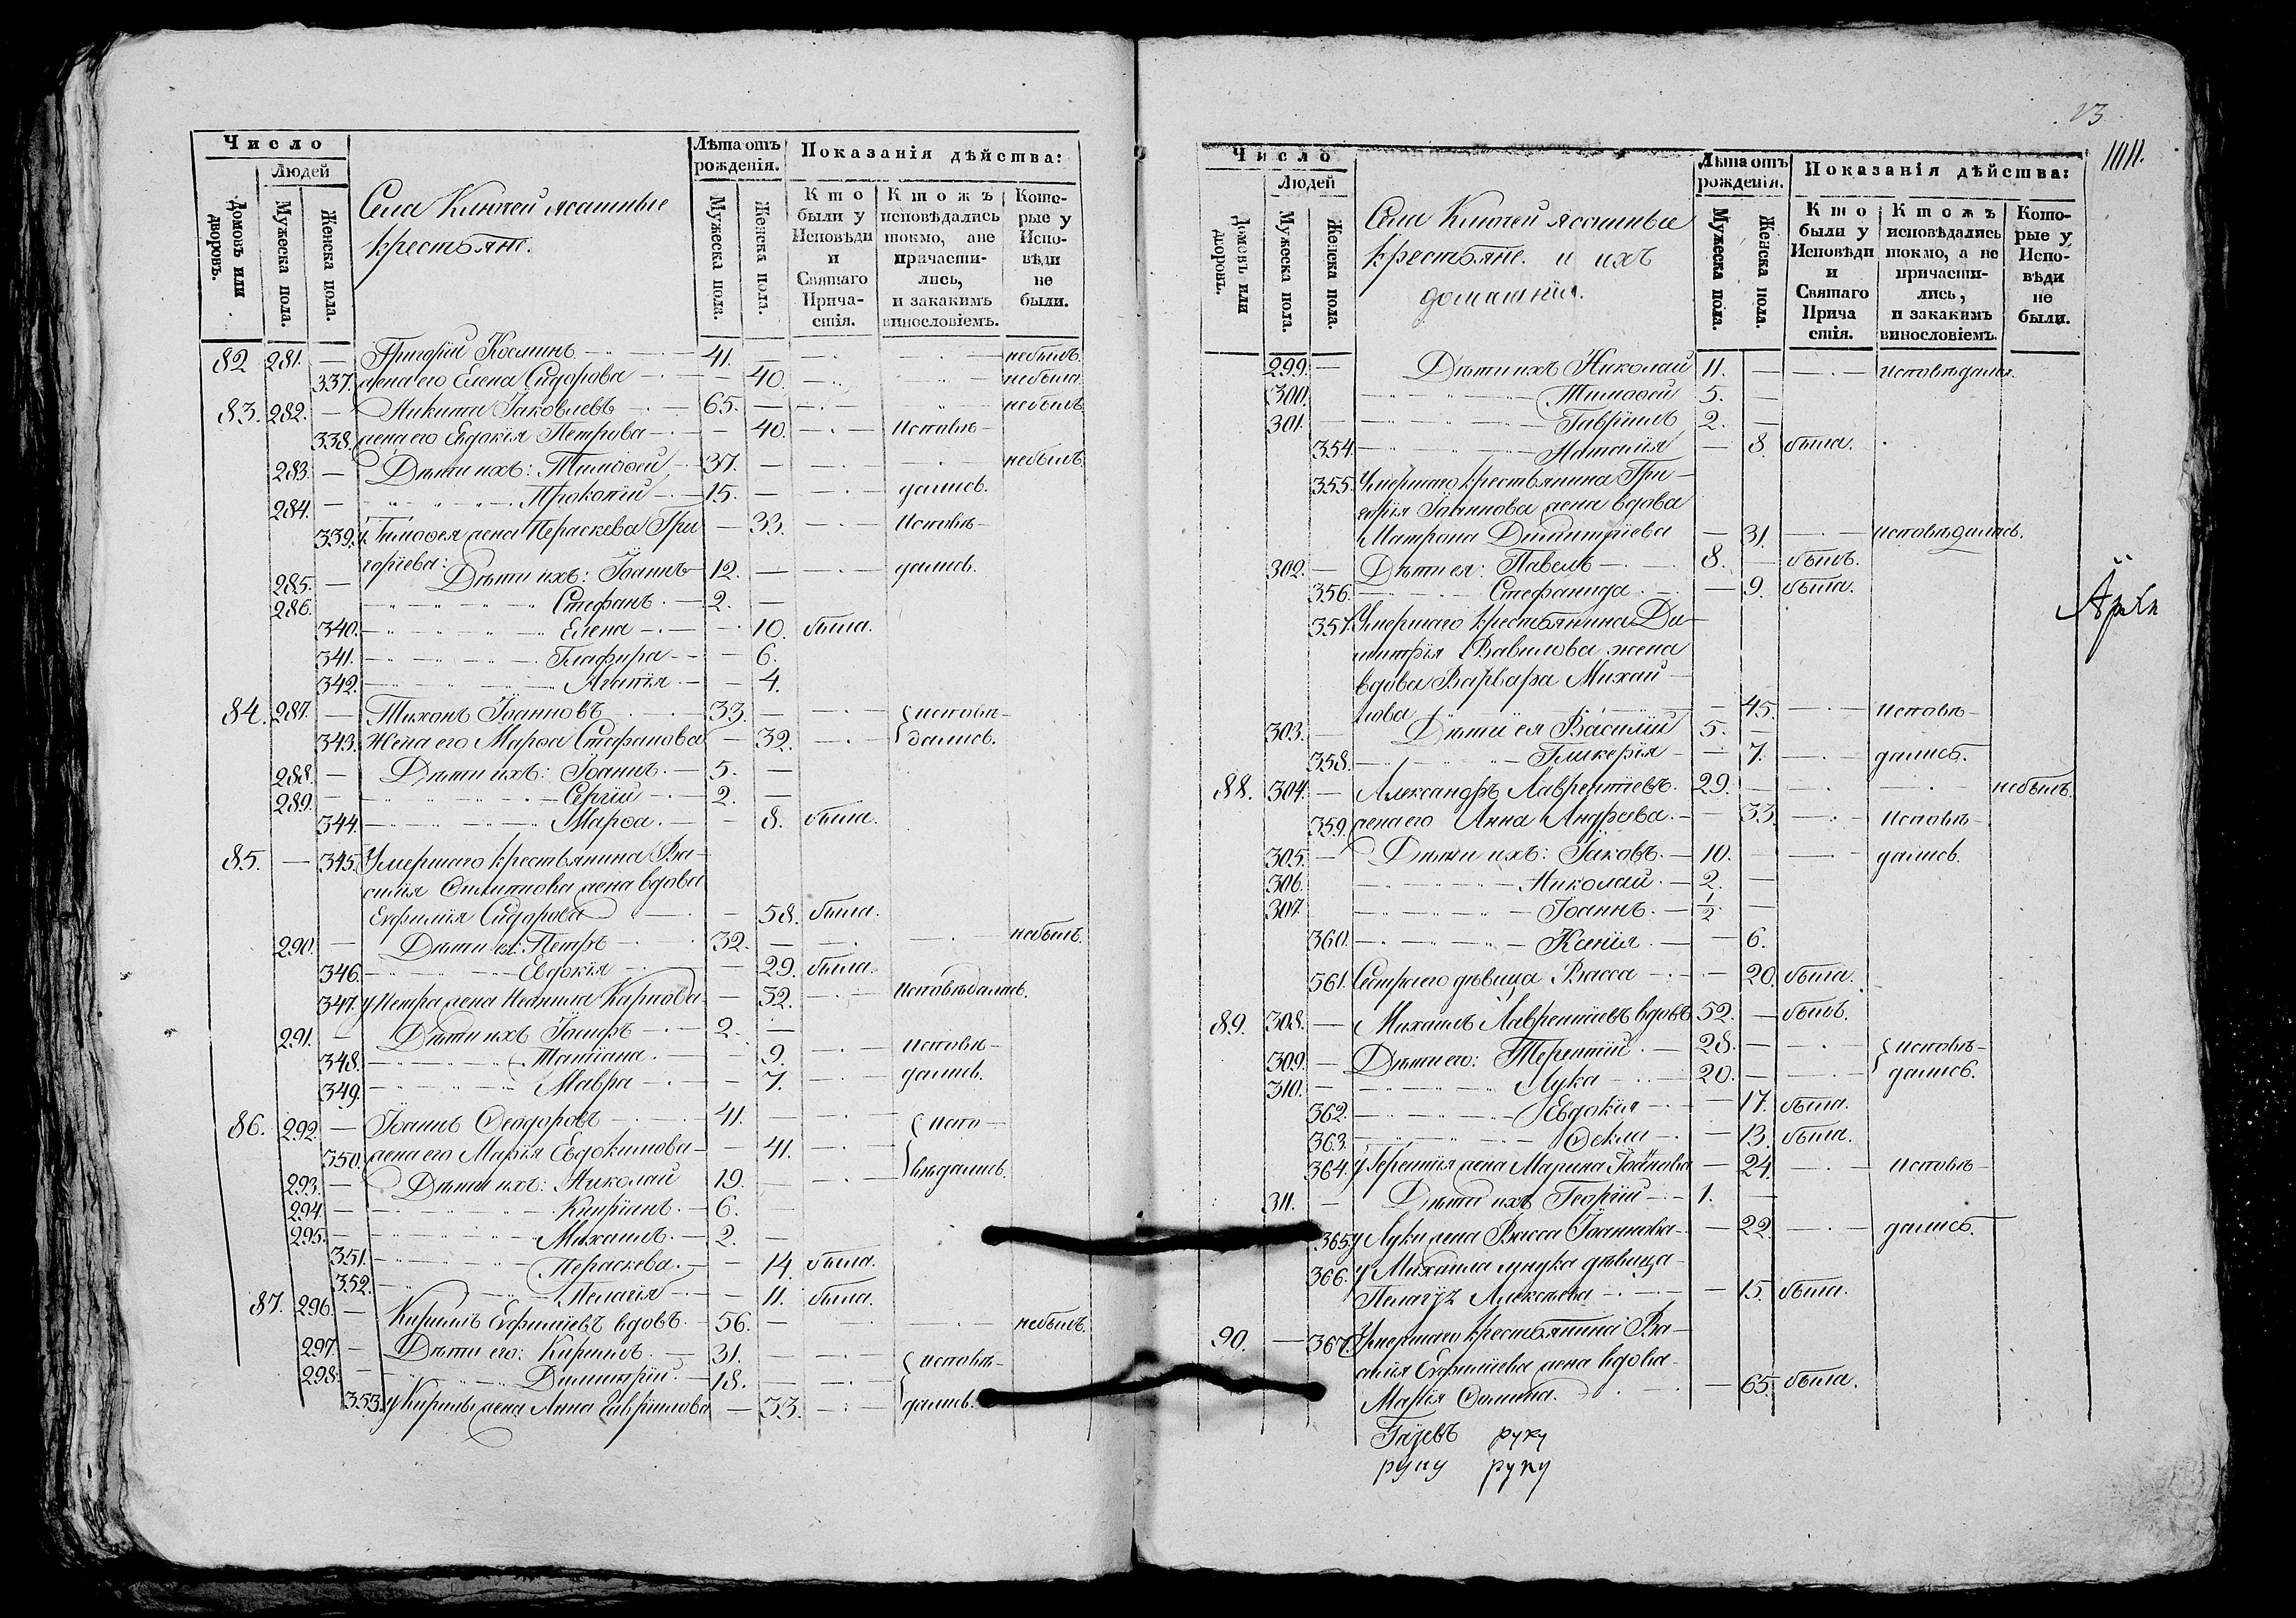 Число
Людей
Домовъ или дворовъ.
Мужеска пола.
Женска пола.
Села Ключей ясашные
крестьяне.
Лѣта отъ рожденія.
Мужеска пола.
Женска пола.
Показанія дѣйства:
Кто были у Исповѣди и Святаго Прича-стія.
Ктожъ исповѣдались токмо, ане причасти-лись, и закакимъ винословіемъ.
Кото-рые у Испо-вѣди не были.
82 281. — Григорій Косминъ — 41. — небылъ.
337. жена его Елена Сидорова — 40. — небыла.
83. 282. — Никита Іаковлевъ — 65. — небылъ
338. жена его Евдокія Петрова — 40. — Исповѣ-
283. — Дѣти ихъ: Тимоѳей 37. — небылъ
284. — Прокопій — 15. — дались.
339. у Тимоѳея жена Параскева Гри — 33. — Исповѣ-
горіева:
285. — Дѣти ихъ: Іоаннъ 12. — дались.
286. Стефанъ. — 2. —
340. Елена — 10. была.
341. Глафира — 6.
342. Агапія — 4.
84. 287. — Тихонъ Іоанновъ — 33. — исповѣ-
343. Жена его Марѳа Стефанова — 32. — дались.
288. — Дѣти ихъ: Іоаннъ. — 5. —
289. — Сергій — 2. —
344. Марѳа. — 8. была.
85. — 345. Умершаго крестьянина Ва-
силія жена вдова
Евфимія Сидорова — 58. была.
290. — Дѣти ея: Петръ — 32. — небылъ.
346. Евдокія — 29. была.
347. у Петра жена Неонила Карпова — 32. — Исповѣдались.
291. — Дѣти ихъ Іосифъ — 2. —
348. Татіана. — 9. — Исповѣ-
349. Мавра — 7. — дались.
86. 292. — Іоаннъ Ѳеодоровъ — 41. — испо-
350. жена его Марія Евдокимова — 41. — вѣдались.
293. — Дѣти ихъ: Николай 19. —
294. — Кипріанъ. — 6. —
295. — Михаилъ. — 2. —
351. Параскева. — 14. была.
352. Пелагія — 11. была.
87. 296. — Кириллъ Евфиміевъ вдовъ. — 56. — небылъ.
297. — Дѣти его: Кириллъ. — 31. — исповѣ-
298. — Димитрій. — 18. —
353. у Кирилы жена Анна Гавріилова — 33. — дались.
23
1111.
Число
Людей
Домовъ или дворовъ.
Мужеска пола.
Женска пола.
Села Ключей ясашные
крестьяне. и ихъ
домашніи.
Лѣта отъ рожденія.
Мужеска пола.
Женска пола.
Показанія дѣйства:
Кто были у Исповѣди и Святаго Прича стія.
Ктожъ исповѣдались токмо, а не причасти-лись, и закакимъ винословіемъ.
Кото-рые у Испо-вѣди не были.
299. — Дѣти ихъ Николай 11. — исповѣдались.
300. Тимоѳей 5. —
301. Гавріилъ 2. —
354. Наталія — 8. была.
355. Умершаго крестьянина Гри-
горія Іоаннова жена вдова
Матрона Димитріева — 31. — исповѣдались.
302. — Дѣти ея: Павелъ — 8. — былъ.
356. Стефанида — 9. была.
357. Умершаго крестьянина Ди-
митрія Вавилова жена
вдова Варвара Михаи-
лова — 45. — исповѣ-
303. — Дѣти ея Василій 5. —
358. Гликерія — 7. — дались.
88. 304. — Александръ Лаврентіевъ. 29. — небылъ.
359. жена его Анна Андреева. — 33. — Исповѣ-
305. — Дѣти ихъ: Іаковъ. — 10. — дались.
306. Николай. — 2. —
307. Іоаннъ. — 1/2 —
360. Ксенія. — 6.
561. Сестра его дѣвица Васса — 20. была.
89. 308. — Михаилъ Лаврентіевъ вдовъ 52. — былъ.
309. — Дѣти его: Терентій. — 28. — исповѣ-
310. — Лука — 20. — дались.
362. Евдокія — 17. была.
363. Ѳекла — 13. была.
364. у Терентія жена Марина Іоаннова — 24. — исповѣ-
311. — Дѣти ихъ Георгій — 1. —
365. у Луки жена Васса Іоаннова — 22. — дались.
366. у Михаила дѣвица
Алексѣева — 15. была.
90. — 367. Умершаго крестьянина Ва-
силія Евфиміева жена вдова
Марія Ѳомина. — 65. была.
руку
руку